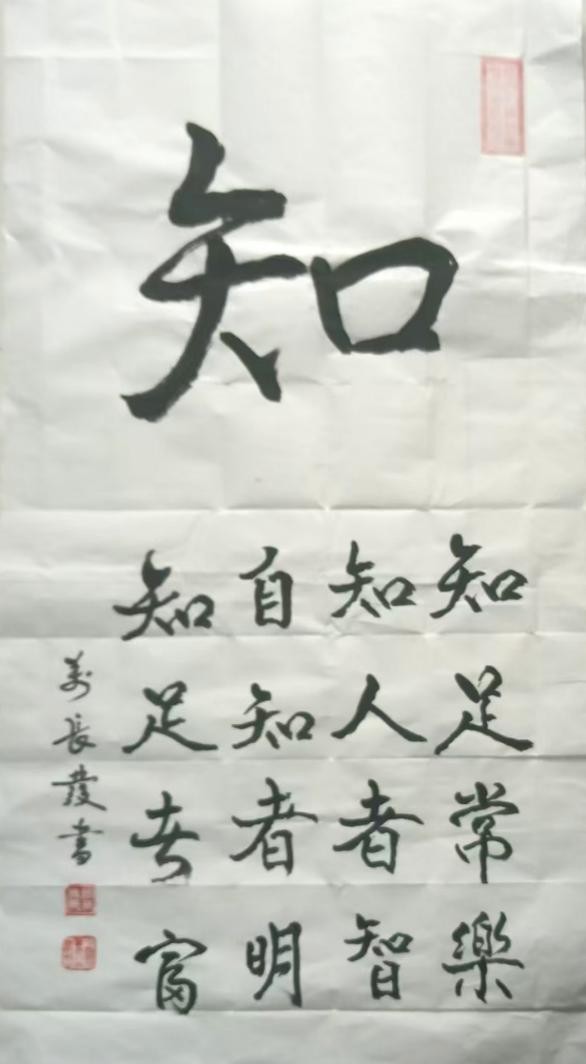 知
知足常樂
知人者智
自知者明
知足者富
萬長發書